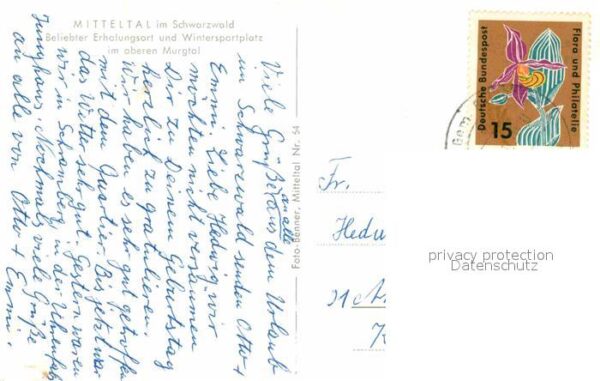 MITTELTAL im Schwarzwald
Beliebter Erholungsort und Wintersportplatz
im oberen Murgtal
Viele Grüße an alle aus dem Urlaub
im Schwarzwald senden Otto +
Emmi. Liebe Hedwig, wir
möchten nicht versäumen
Dir zu Deinem Geburtstag
herzlich zu gratulieren.
Wir haben es sehr gut getroffen
mit dem Quartier. Bis jetzt war
das Wetter sehr gut. Gestern waren
wir in Schramberg in der Uhrenfabr.
Junghans. Nochmals viele Grüße
an alle von Otto + Emmi.
Foto-Benner, Mitteltal Nr. 54
Deutsche Bundespost
Flora und Philatelie
15
Gem
Fr.
Hedw
privacy protection
Datenschutz